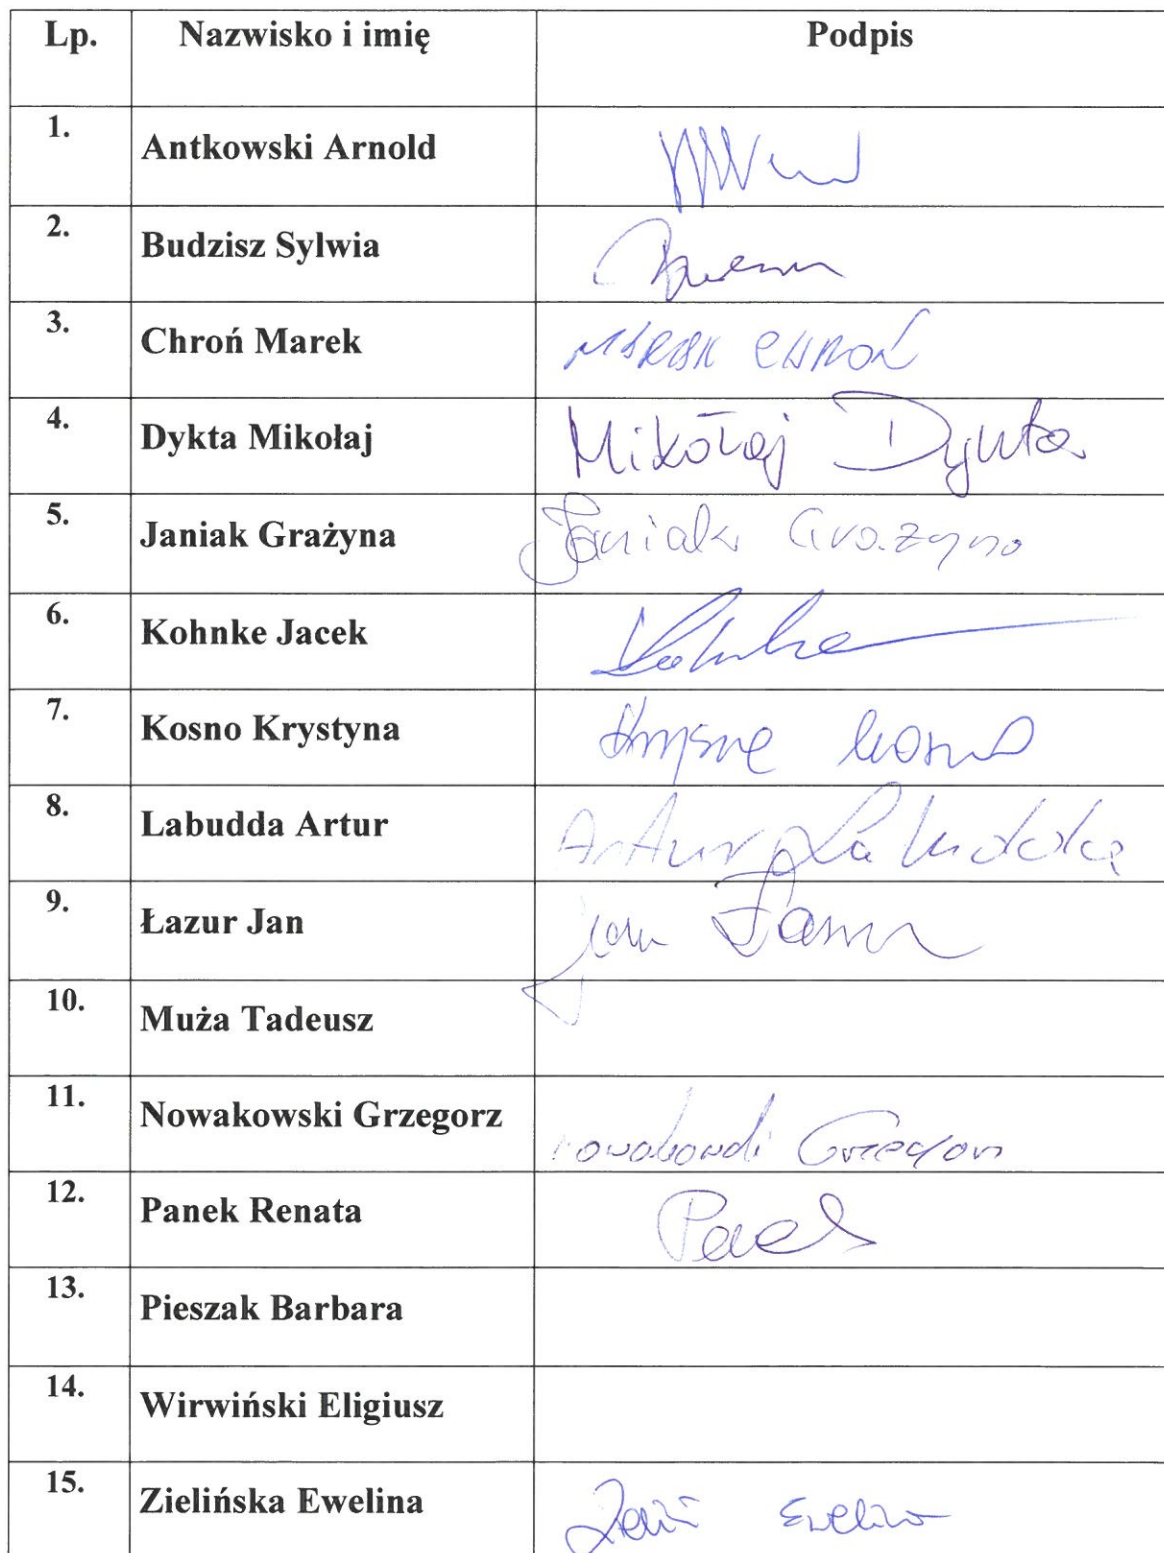 Lp. Nazwisko i imię Podpis
1. Antkowski Arnold
2. Budzisz Sylwia
3. Chroń Marek MAREK CHROŃ
4. Dykta Mikołaj Mikołaj Dykta
5. Janiak Grażyna Janiak Grażyna
6. Kohnke Jacek Kohnke
7. Kosno Krystyna Kosno
8. Labudda Artur Artur Labudda
9. Łazur Jan Jan Łazur
10. Muża Tadeusz
11. Nowakowski Grzegorz Nowakowski Grzegorz
12. Panek Renata Panek
13. Pieszak Barbara
14. Wirwiński Eligiusz
15. Zielińska Ewelina Ewelina